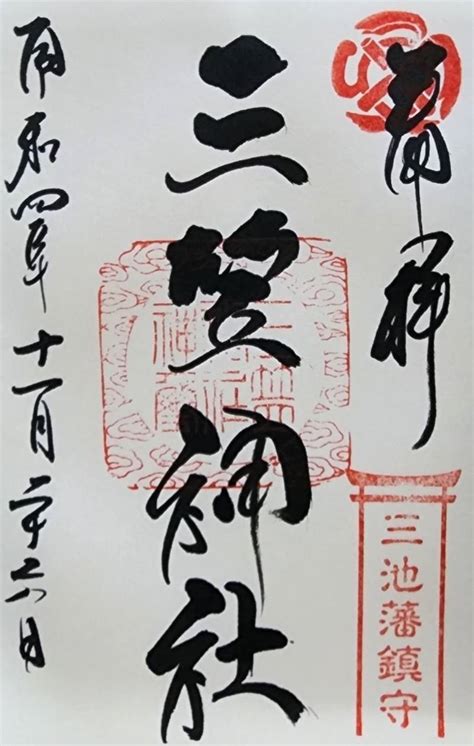 奉拝
三池藩鎮守
三笠神社
令和四年十一月二十六日